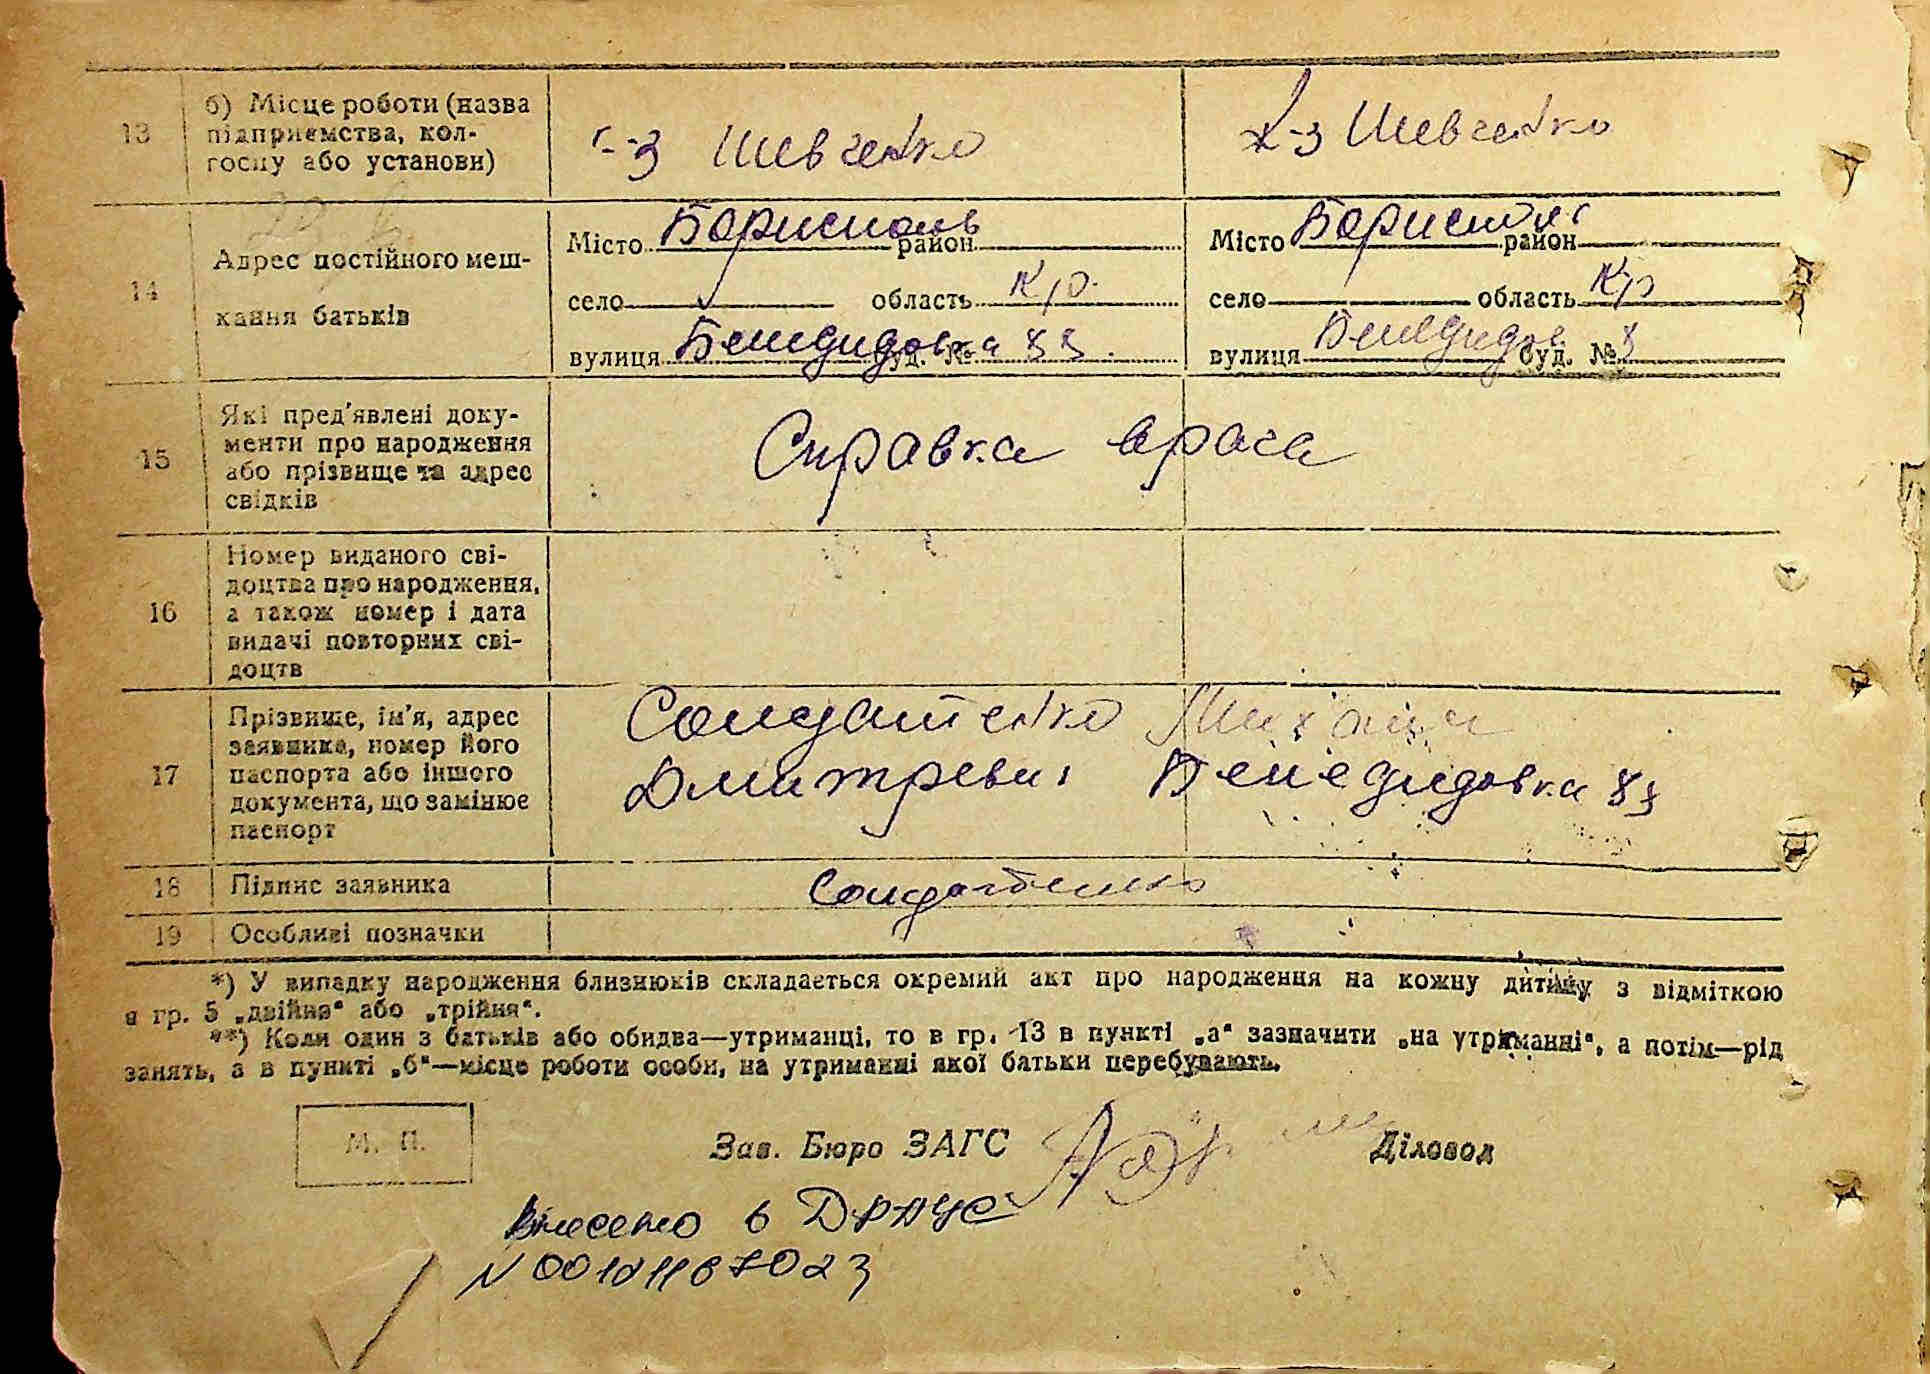 13 б) Місце роботи (назва підприємства, колгоспу або установи) к-з Шевченко к-з Шевченко
14 Адрес постійного мешкання батьків
Місто Бориспіль район Місто Бориспіль район
село область Кр. село область Кр
вулиця буд. № 83 вулиця буд. №
15 Які пред'явлені документи про народження або прізвище та адрес свідків Справка врача
16 Номер виданого свідоцтва про народження, а також номер і дата видачі повторних свідоцтв
17 Прізвище, ім'я, адрес заявника, номер його паспорта або іншого документа, що замінює паспорт Солдатенко
Дмитревич 83
18 Підпис заявника Солдатенко
19 Особливі позначки
*) У випадку народження близнюків складається окремий акт про народження на кожну дитину з відміткою
в гр. 5 „двійня" або „трійня".
**) Коли один з батьків або обидва—утриманці, то в гр. 13 в пункті „а" зазначити „на утриманні", а потім—рід
занять, а в пункті „б"—місце роботи особи, на утриманні якої батьки перебувають.
М. П. Зав. Бюро ЗАГС Діловод
Внесено в ДРАЦС
N 00101167023